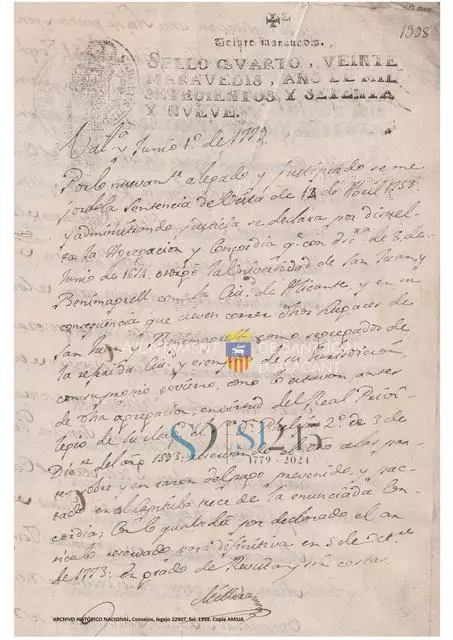 1398
Veinte maravedis.
SELLO QVARTO, VEINTE
MARAVEDIS, AÑO DE MIL
SETECIENTOS Y SETENTA
Y NUEVE.
Val.ª y Junio 1.º de 1779
Por lo nuevam.te alegado y justificado se me
jorada la Sentencia de Vista de 12 de Abril 1758.
y administrando Justicia se declara por disuel
ta la Agregacion y Concordia q.e con de 3. de
Junio de 1614. otorgó la Universidad de San Juan, y
Benimagrell con la Ciu.d de Alicante, y en su
consequencia que deven correr dhos Lugares de
San Juan y Benimagrell como segregados de
la referida Ciu.d y esemptos de su Jurisdiccion
con su propio govierno, como lo estavan antes
de dha agregacion, en virtud del Real Privi
legio de Phelipe 2.º de 3 de
Di.re del año 1593: reservando el dro a las par
tes sobre y en razon del pago prevenido, y pac
tado en el Capitulo trece de la enunciada Con
cordia; Con lo qual esté por declarado el ar
ticulo reservado para difinitiva en 5 de Oct.re
de 1773: en grado de Revista y sin costas.
AJUNTAMENT DE SANT JOAN
D'ALACANT
SO SI 245
1779 - 2024
ARCHIVO HISTÓRICO NACIONAL, Consejos, legajo 22807, fol. 1398. Copia AMSJA